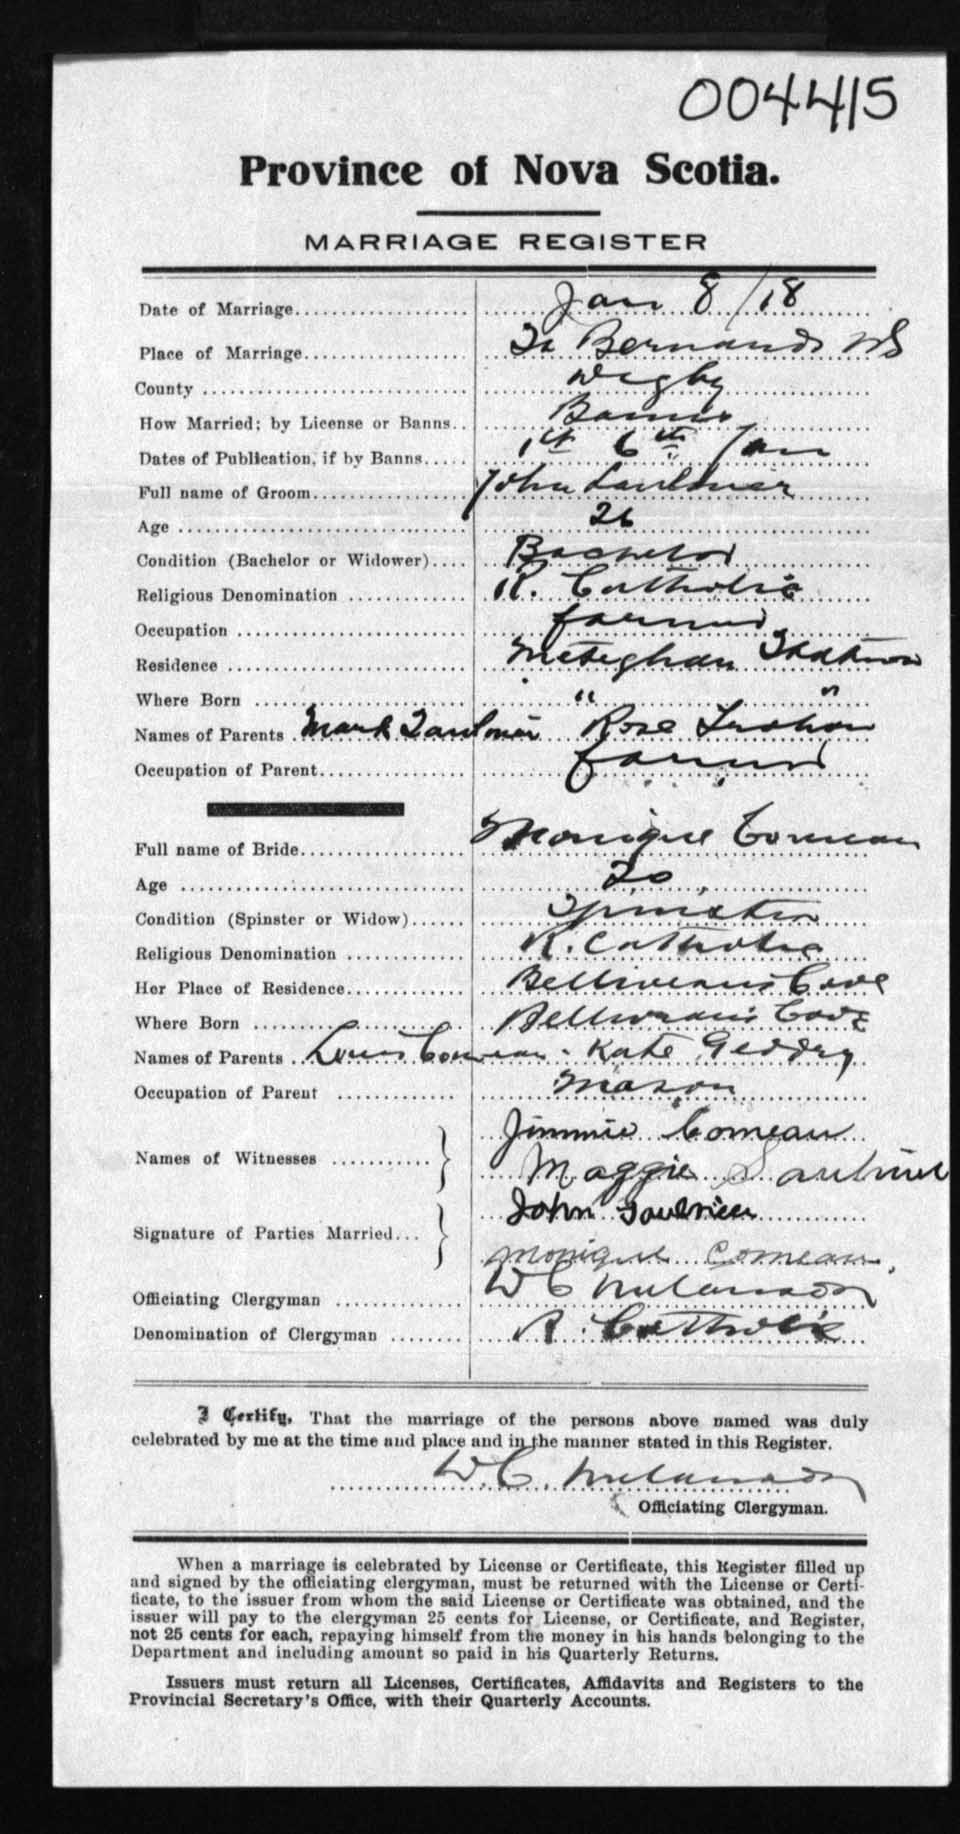 004415
Province of Nova Scotia.
MARRIAGE REGISTER
Date of Marriage Jan 8/18
Place of Marriage St Bernards NS
County Digby
How Married; by License or Banns Banns
Dates of Publication, if by Banns 1st 6th Jan
Full name of Groom John Saulnier
Age 26
Condition (Bachelor or Widower) Bachelor
Religious Denomination R. Catholic
Occupation farmer
Residence Meteghan Station
Where Born " "
Names of Parents Mark Saulnier Rose Trahan
Occupation of Parent farmer
Full name of Bride Monique Comeau
Age 20
Condition (Spinster or Widow) Spinster
Religious Denomination R. Catholic
Her Place of Residence Belliveaus Cove
Where Born Belliveaus Cove
Names of Parents Louis Comeau - Kate Geddry
Occupation of Parent Mason
Names of Witnesses Jimmie Comeau
Maggie Saulnier
Signature of Parties Married John Saulnier
Monique Comeau
Officiating Clergyman W C
Denomination of Clergyman R. Catholic
I Certify, That the marriage of the persons above named was duly
celebrated by me at the time and place and in the manner stated in this Register.
W. C.
Officiating Clergyman.
When a marriage is celebrated by License or Certificate, this Register filled up
and signed by the officiating clergyman, must be returned with the License or Certi-
ficate, to the issuer from whom the said License or Certificate was obtained, and the
issuer will pay to the clergyman 25 cents for License, or Certificate, and Register,
not 25 cents for each, repaying himself from the money in his hands belonging to the
Department and including amount so paid in his Quarterly Returns.
Issuers must return all Licenses, Certificates, Affidavits and Registers to the
Provincial Secretary's Office, with their Quarterly Accounts.